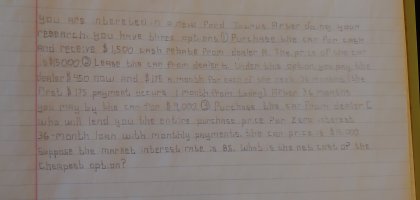 you are interested in a new Ford Taurus After doing your
research, you have three options ① Purchase the car for cash
and receive $1,500 cash rebate from dealer A. The price of the car
is $15000 ② Lease the car from dealer b. Under this option, you pay the
dealer $ now and $175 a month for each of the next 36 months (the
first $175 payment occurs 1 month from today) After 36 months
you may by the car for $ ③ Purchase the car from dealer C
who will lend you the entire purchase price for zero interest
36-month loan with monthly payments. the car price is $
Suppose the market interest rate is 8%. What is the net cost of the
Cheapest option?